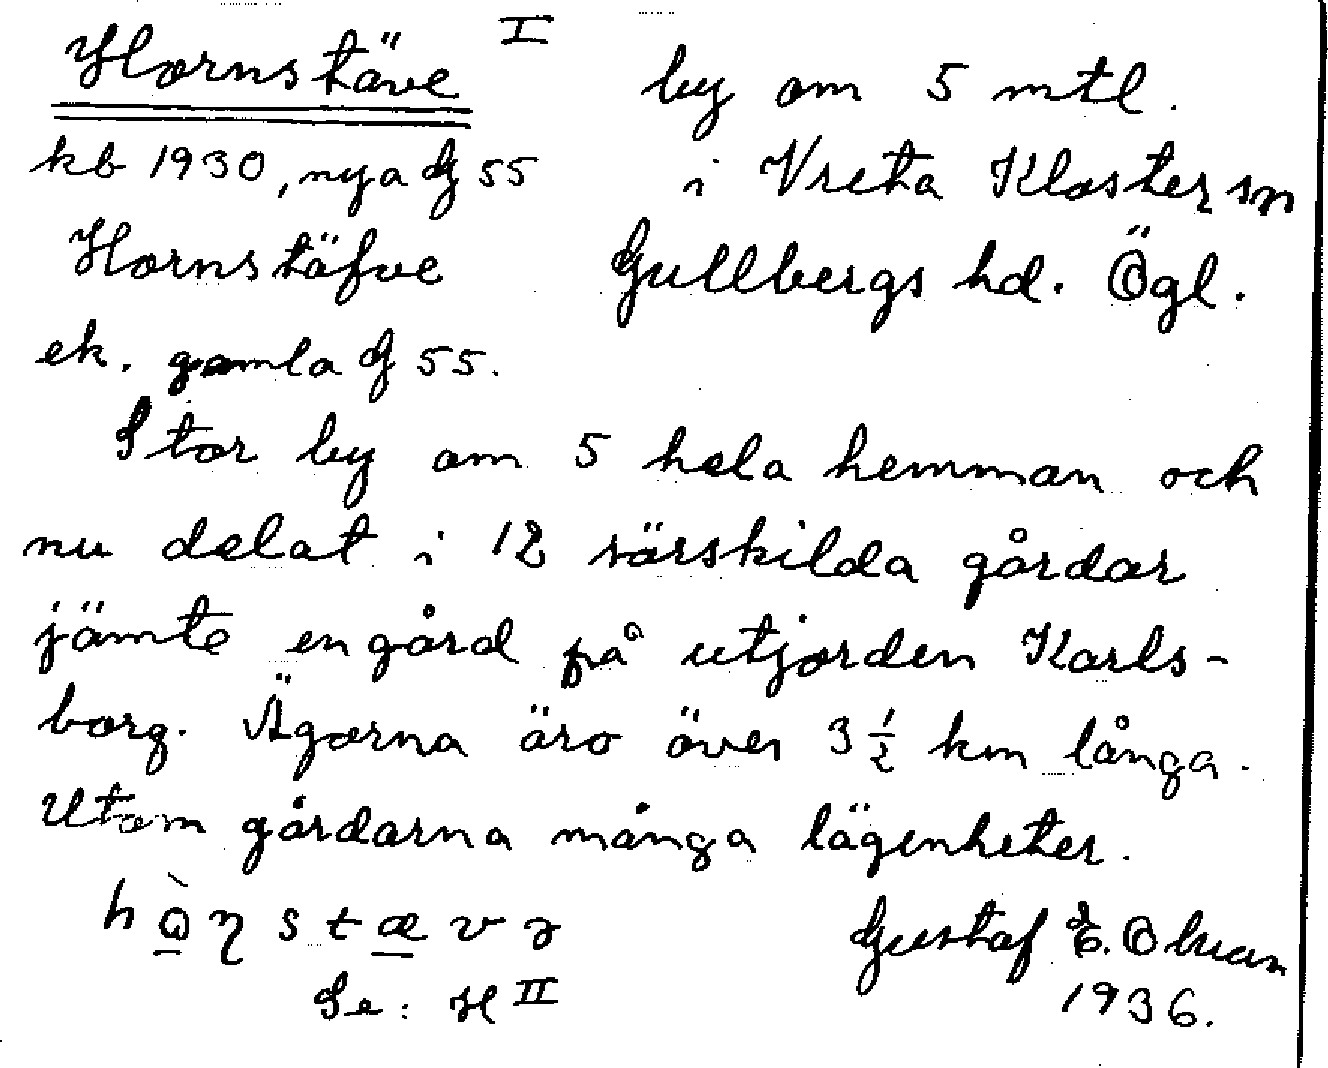 Hornstäve I
by om 5 mtl.
kb 1930, nya G 55
i Vreta Kloster sn
Hornstäfve
Gullbergs hd. Ögl.
ek. gamla G 55.
Stor by om 5 hela hemman och
nu delat i 12 särskilda gårdar
jämte en gård på utjorden Karls-
borg. Ägorna äro över 3 ½ km långa.
Utom gårdarna många lägenheter.
Gustaf E.
1936.
Se: H II